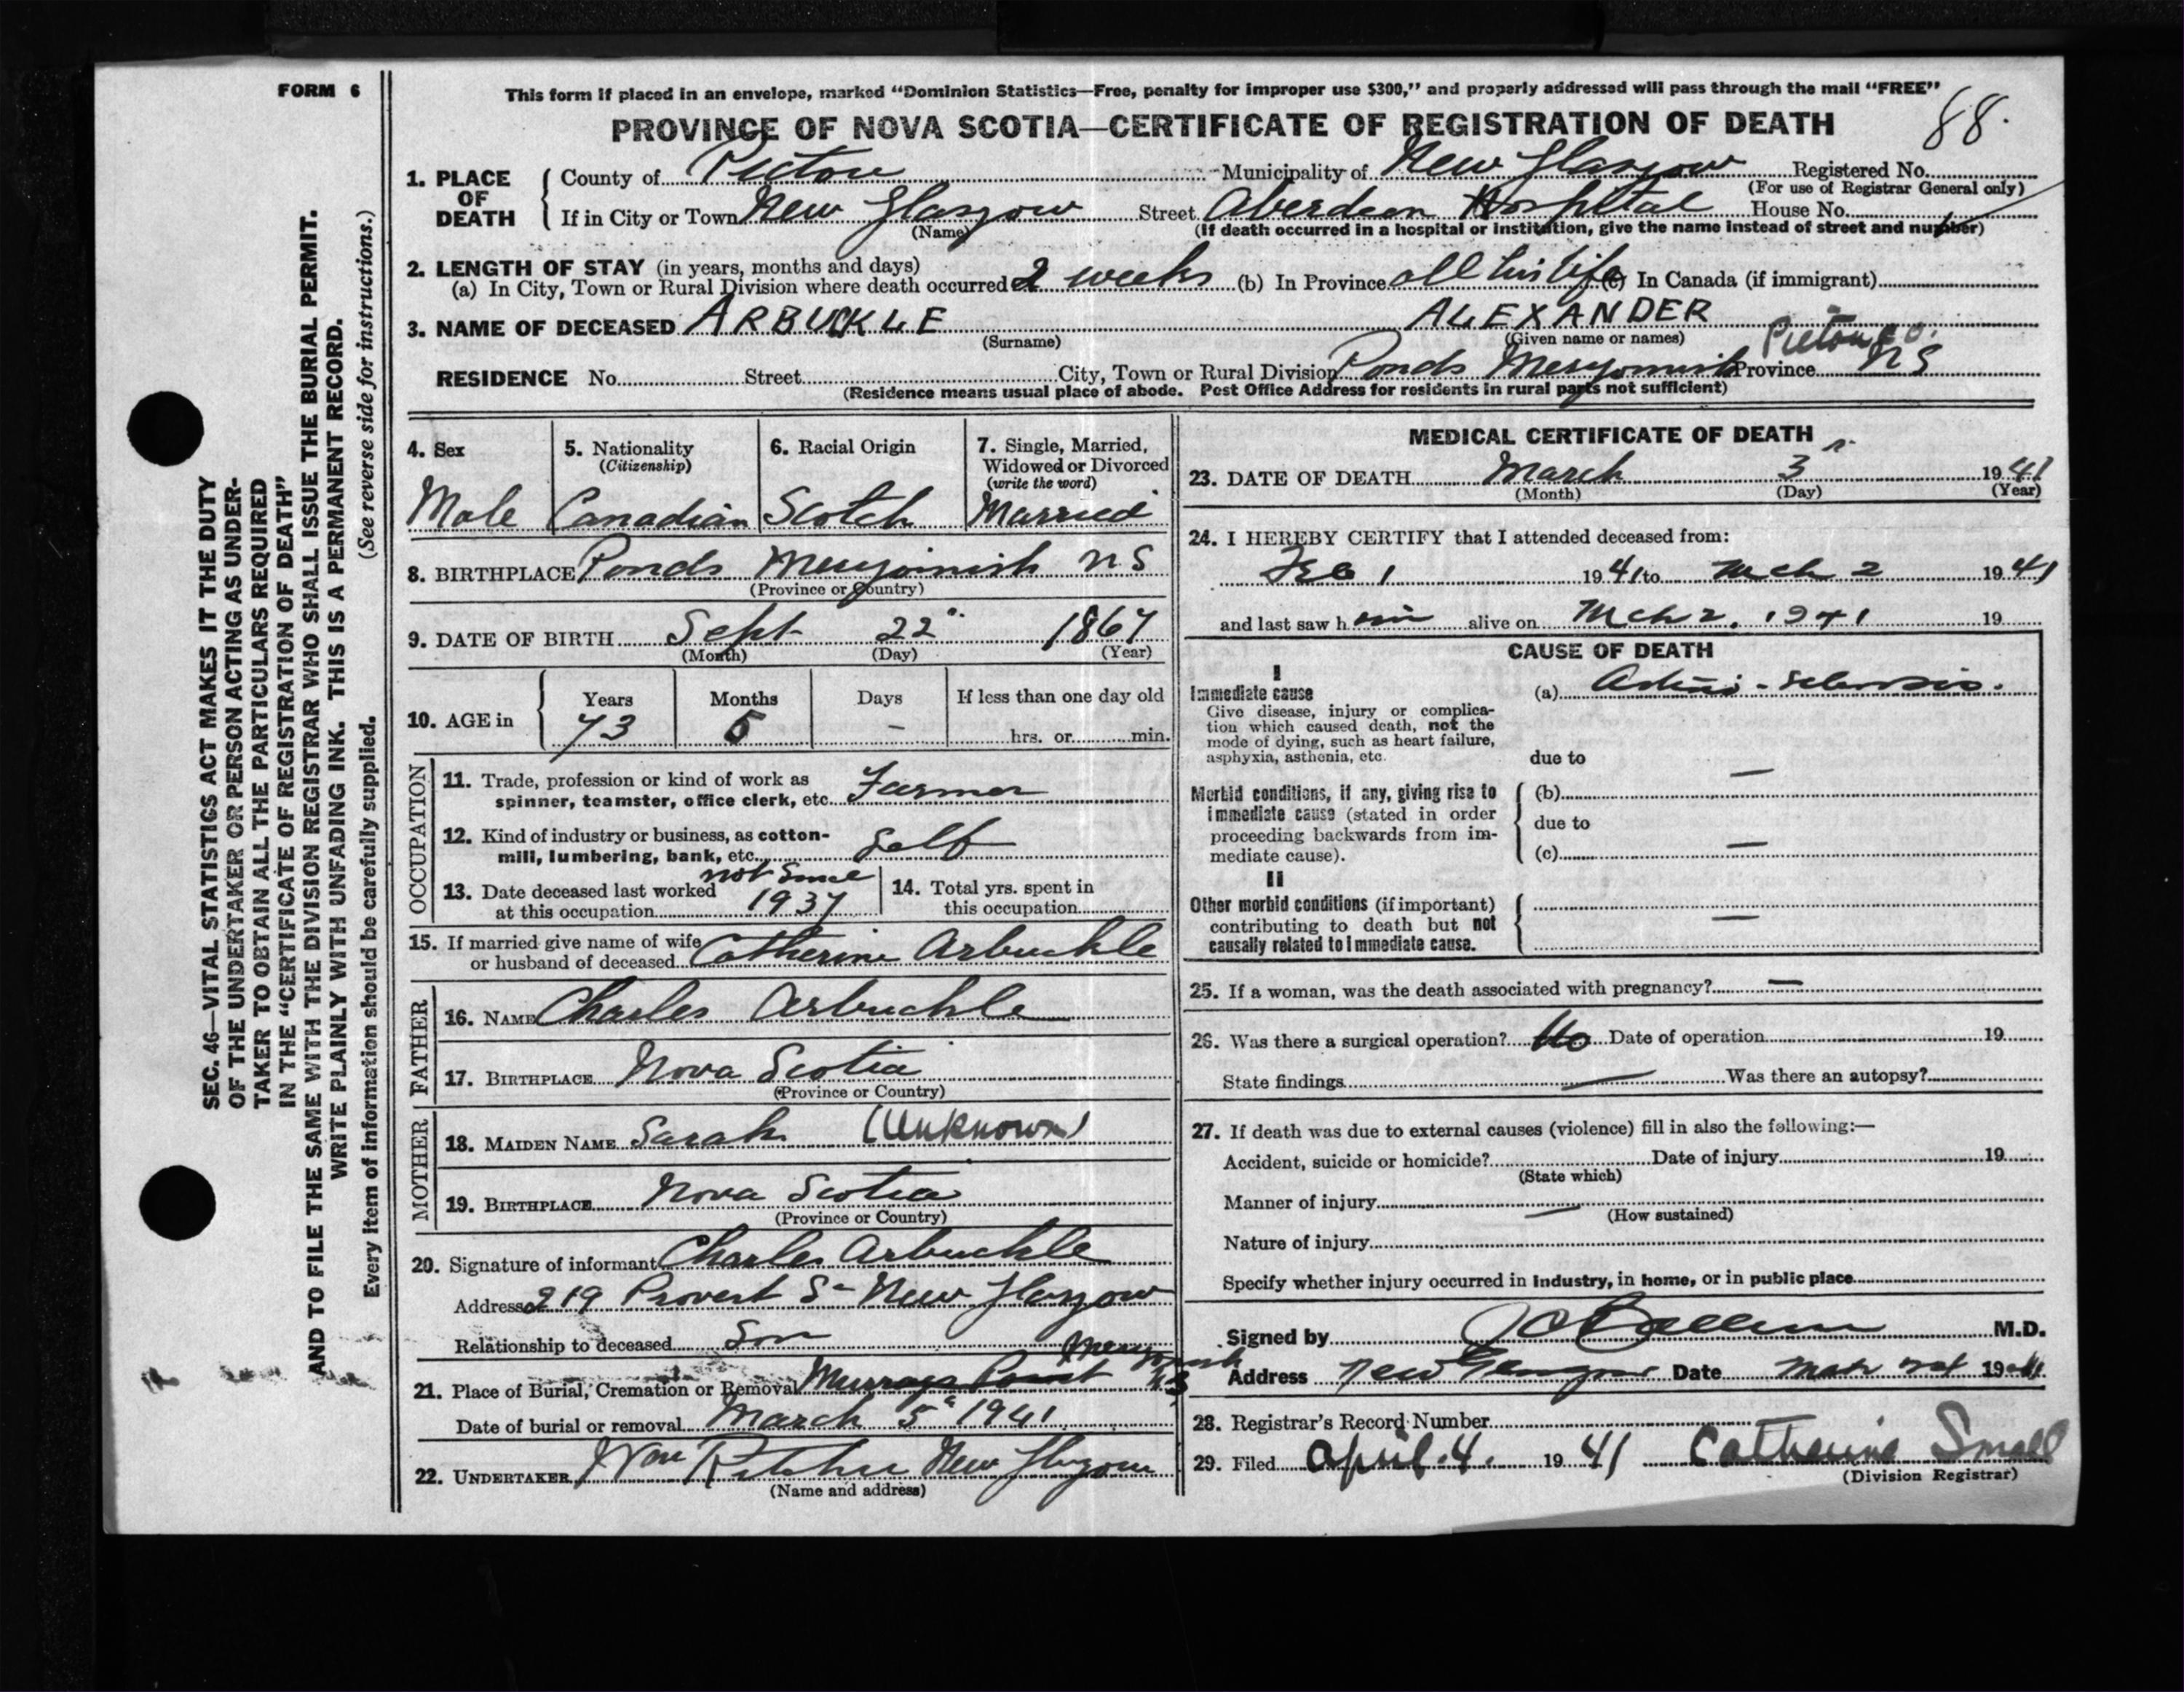 FORM 6
This form if placed in an envelope, marked "Dominion Statistics—Free, penalty for improper use $300," and properly addressed will pass through the mail "FREE"
PROVINCE OF NOVA SCOTIA—CERTIFICATE OF REGISTRATION OF DEATH
88.
SEC. 46—VITAL STATISTICS ACT MAKES IT THE DUTY
OF THE UNDERTAKER OR PERSON ACTING AS UNDER-
TAKER TO OBTAIN ALL THE PARTICULARS REQUIRED
IN THE "CERTIFICATE OF REGISTRATION OF DEATH"
AND TO FILE THE SAME WITH THE DIVISION REGISTRAR WHO SHALL ISSUE THE BURIAL PERMIT.
WRITE PLAINLY WITH UNFADING INK. THIS IS A PERMANENT RECORD.
(See reverse side for instructions.)
Every item of information should be carefully supplied.
1. PLACE OF DEATH
County of Pictou Municipality of New Glasgow Registered No.
(For use of Registrar General only)
If in City or Town New Glasgow Street Aberdeen Hospital House No.
(Name) (If death occurred in a hospital or institution, give the name instead of street and number)
2. LENGTH OF STAY (in years, months and days)
(a) In City, Town or Rural Division where death occurred 2 weeks (b) In Province all his life (c) In Canada (if immigrant)
3. NAME OF DECEASED ARBUCKLE ALEXANDER
(Surname) (Given name or names)
Pictou Co.
RESIDENCE No. Street City, Town or Rural Division Ponds Merigomish Province N S
(Residence means usual place of abode. Post Office Address for residents in rural parts not sufficient)
4. Sex
Male
5. Nationality
(Citizenship)
Canadian
6. Racial Origin
Scotch
7. Single, Married,
Widowed or Divorced
(write the word)
Married
8. BIRTHPLACE Ponds Merigomish N S
(Province or Country)
9. DATE OF BIRTH Sept 22 1867
(Month) (Day) (Year)
10. AGE in
Years Months Days If less than one day old
73 5 — hrs. or min.
OCCUPATION
11. Trade, profession or kind of work as
spinner, teamster, office clerk, etc. Farmer
12. Kind of industry or business, as cotton-
mill, lumbering, bank, etc. Self
13. Date deceased last worked not since
at this occupation 1937
14. Total yrs. spent in
this occupation
15. If married give name of wife
or husband of deceased Catherine Arbuckle
FATHER
16. NAME Charles Arbuckle
17. BIRTHPLACE Nova Scotia
(Province or Country)
MOTHER
18. MAIDEN NAME Sarah (Unknown)
19. BIRTHPLACE Nova Scotia
(Province or Country)
20. Signature of informant Charles Arbuckle
Address 219 Provost St New Glasgow
Relationship to deceased Son
Merigomish
21. Place of Burial, Cremation or Removal Murrays Point NS
Date of burial or removal March 5 1941
22. UNDERTAKER Wm Ritchie New Glasgow
(Name and address)
MEDICAL CERTIFICATE OF DEATH
23. DATE OF DEATH March 3 1941
(Month) (Day) (Year)
24. I HEREBY CERTIFY that I attended deceased from:
Feb 1 1941 to Mch 2 1941
and last saw him alive on Mch 2. 1941 19
CAUSE OF DEATH
I
Immediate cause
Give disease, injury or complica-
tion which caused death, not the
mode of dying, such as heart failure,
asphyxia, asthenia, etc.
(a) Arterio-sclerosis.
due to
Morbid conditions, if any, giving rise to
immediate cause (stated in order
proceeding backwards from im-
mediate cause).
(b) —
due to
(c) —
II
Other morbid conditions (if important)
contributing to death but not
causally related to immediate cause.
—
25. If a woman, was the death associated with pregnancy? —
26. Was there a surgical operation? No Date of operation 19
State findings — Was there an autopsy?
27. If death was due to external causes (violence) fill in also the following:—
Accident, suicide or homicide? Date of injury 19
(State which)
Manner of injury —
(How sustained)
Nature of injury
Specify whether injury occurred in industry, in home, or in public place
Signed by M.D.
Address New Glasgow Date Mar 1941
28. Registrar's Record Number
29. Filed April. 4. 1941 Catherine Small
(Division Registrar)